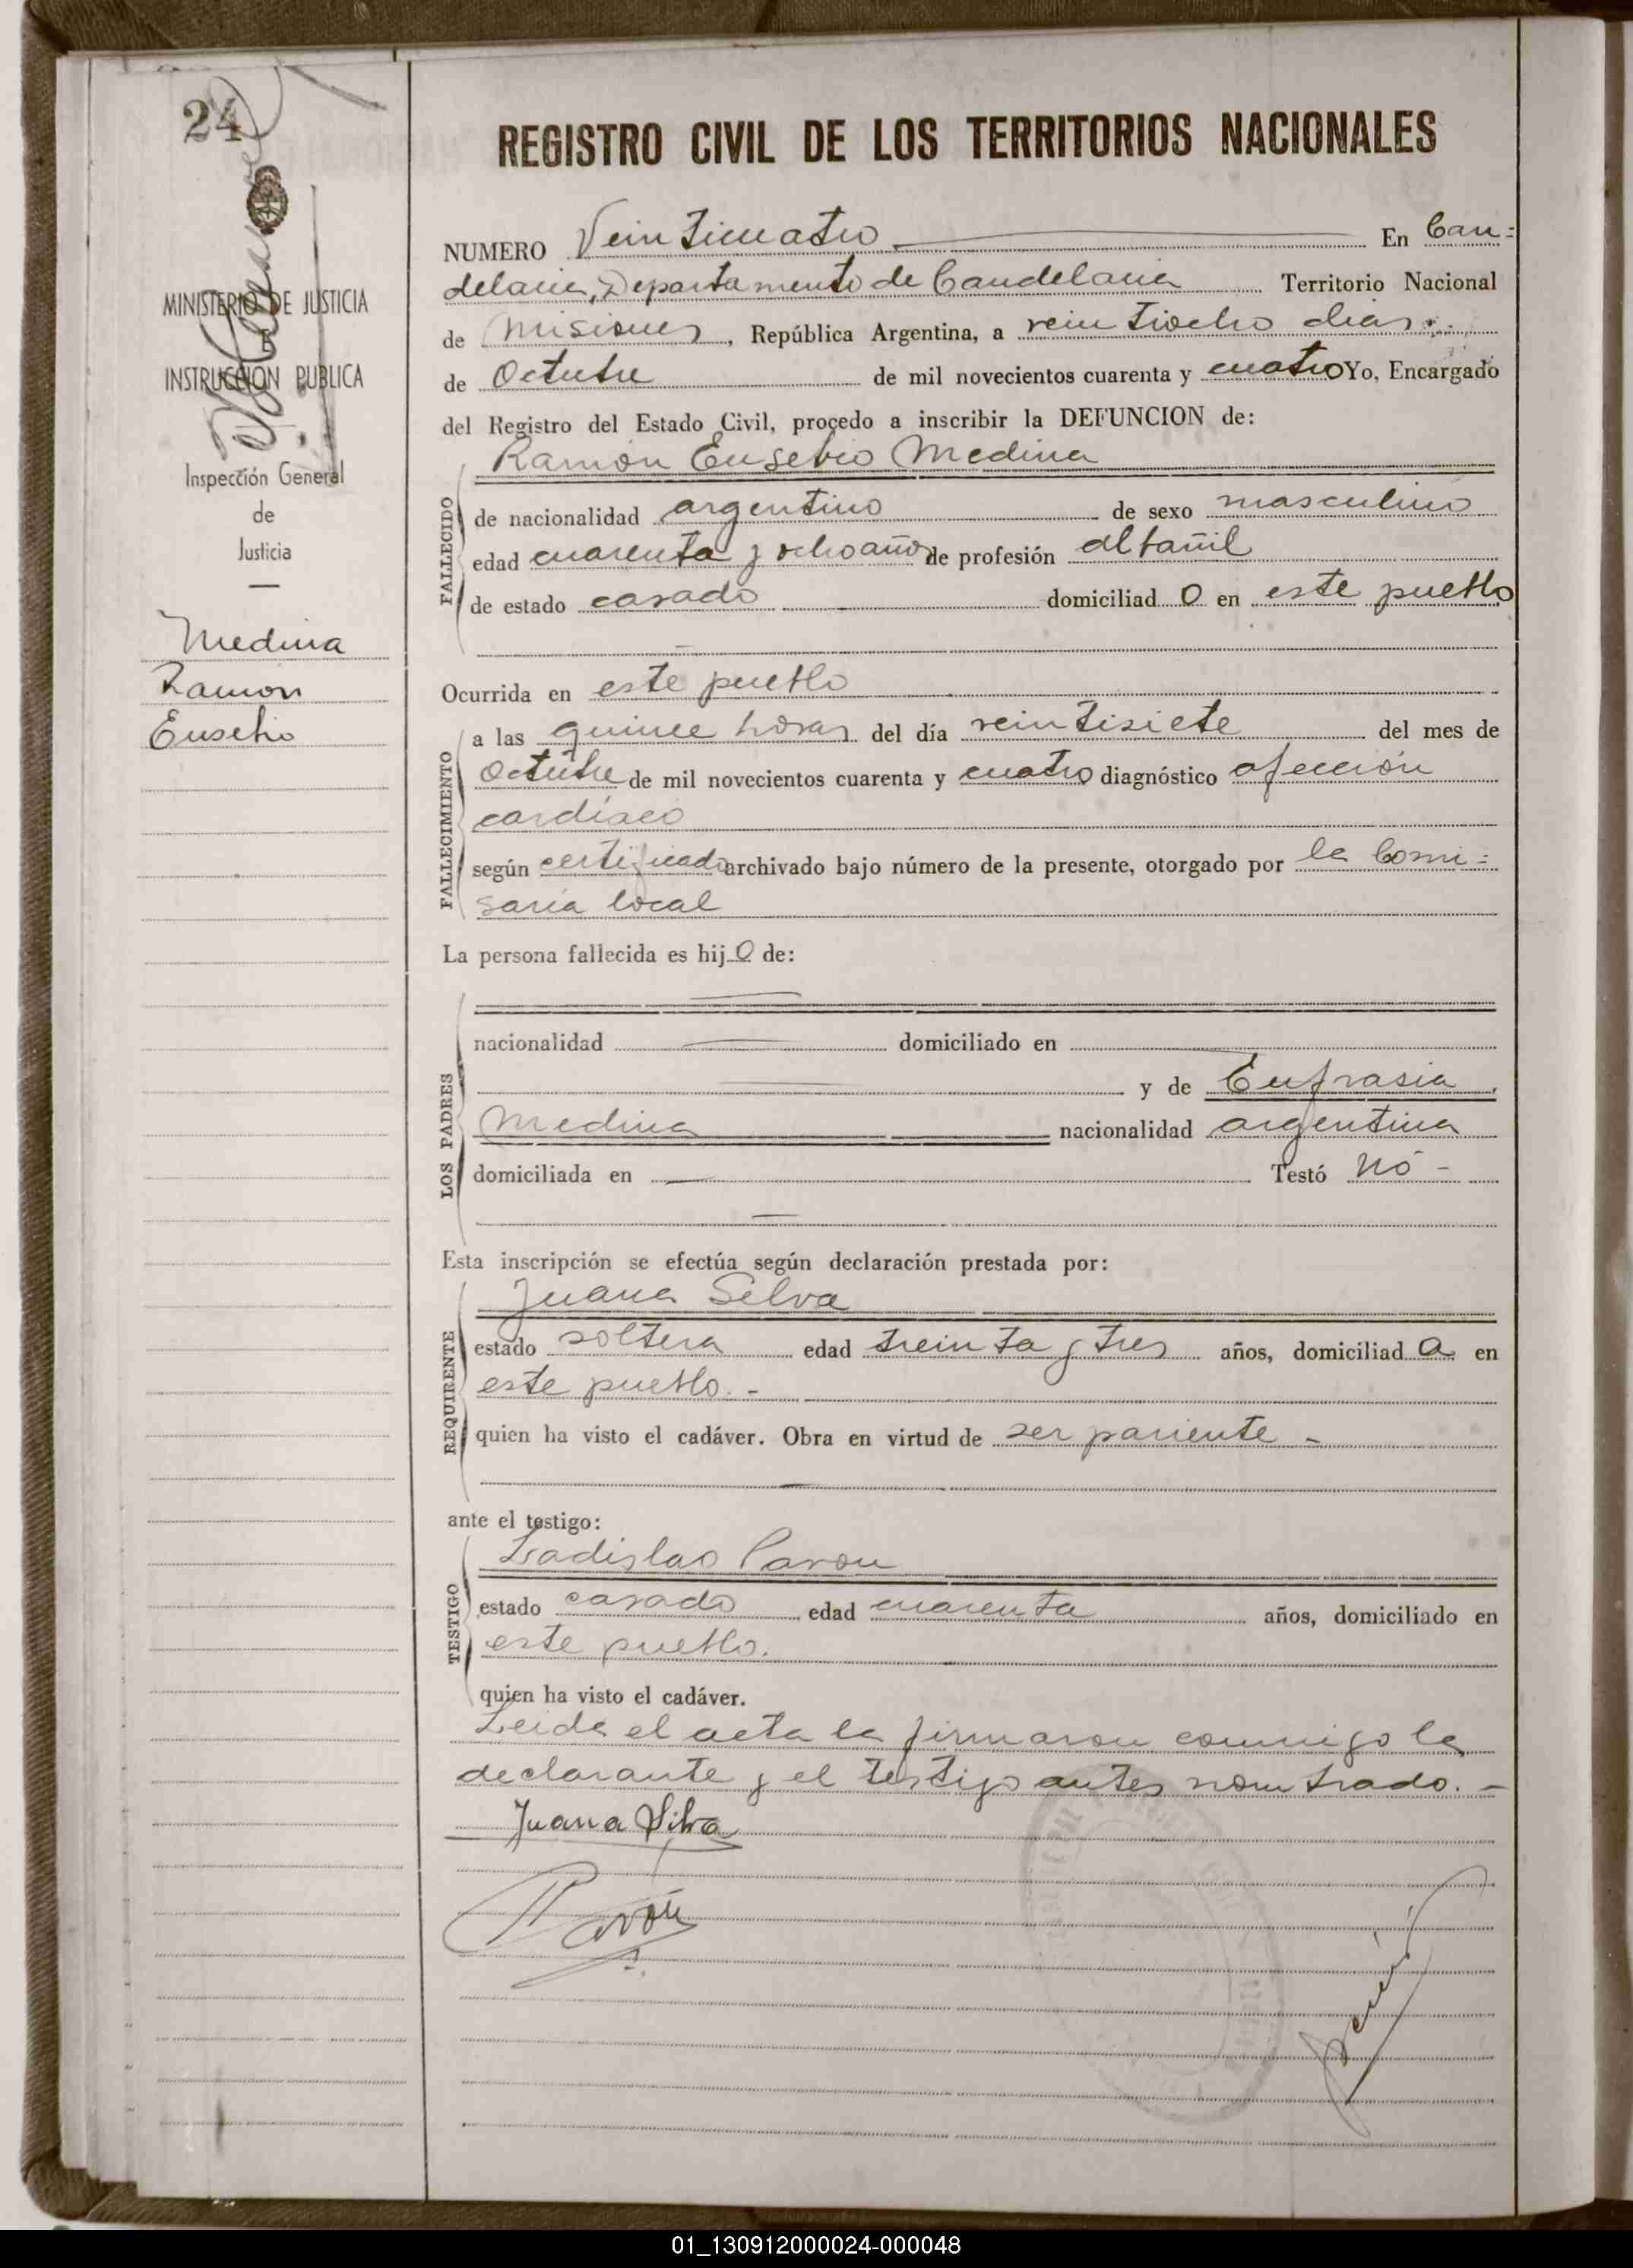 24
MINISTERIO DE JUSTICIA
INSTRUCCION PUBLICA
Inspección General
de
Justicia
Medina
Ramón
Eusebio
REGISTRO CIVIL DE LOS TERRITORIOS NACIONALES
NUMERO Veinticuatro En Can=
delaria, Departamento de Candelaria Territorio Nacional
de Misiones, República Argentina, a veintiocho días
de Octubre de mil novecientos cuarenta y cuatro Yo, Encargado
del Registro del Estado Civil, procedo a inscribir la DEFUNCION de:
Ramón Eusebio Medina
FALLECIDO
de nacionalidad argentino de sexo masculino
edad cuarenta y ocho años de profesión albañil
de estado casado domiciliad o en este pueblo
Ocurrida en este pueblo
FALLECIMIENTO
a las quince horas del día veintisiete del mes de
Octubre de mil novecientos cuarenta y cuatro diagnóstico afección
cardíaco
según certificado archivado bajo número de la presente, otorgado por la Comi=
saría local
La persona fallecida es hij o de:
LOS PADRES
nacionalidad domiciliado en
y de Eufrasia
Medina nacionalidad argentina
domiciliada en Testó Nó -
Esta inscripción se efectúa según declaración prestada por:
Juana Silva
REQUIRENTE
estado soltera edad treinta y tres años, domiciliad a en
este pueblo. -
quien ha visto el cadáver. Obra en virtud de ser pariente -
ante el testigo:
Ladislao Pavon
TESTIGO
estado casado edad cuarenta años, domiciliado en
este pueblo.
quien ha visto el cadáver.
Leída el acta la firmaron conmigo la
declarante y el testigo antes nombrado. -
Juana Silva
Pavón
01_130912000024-000048